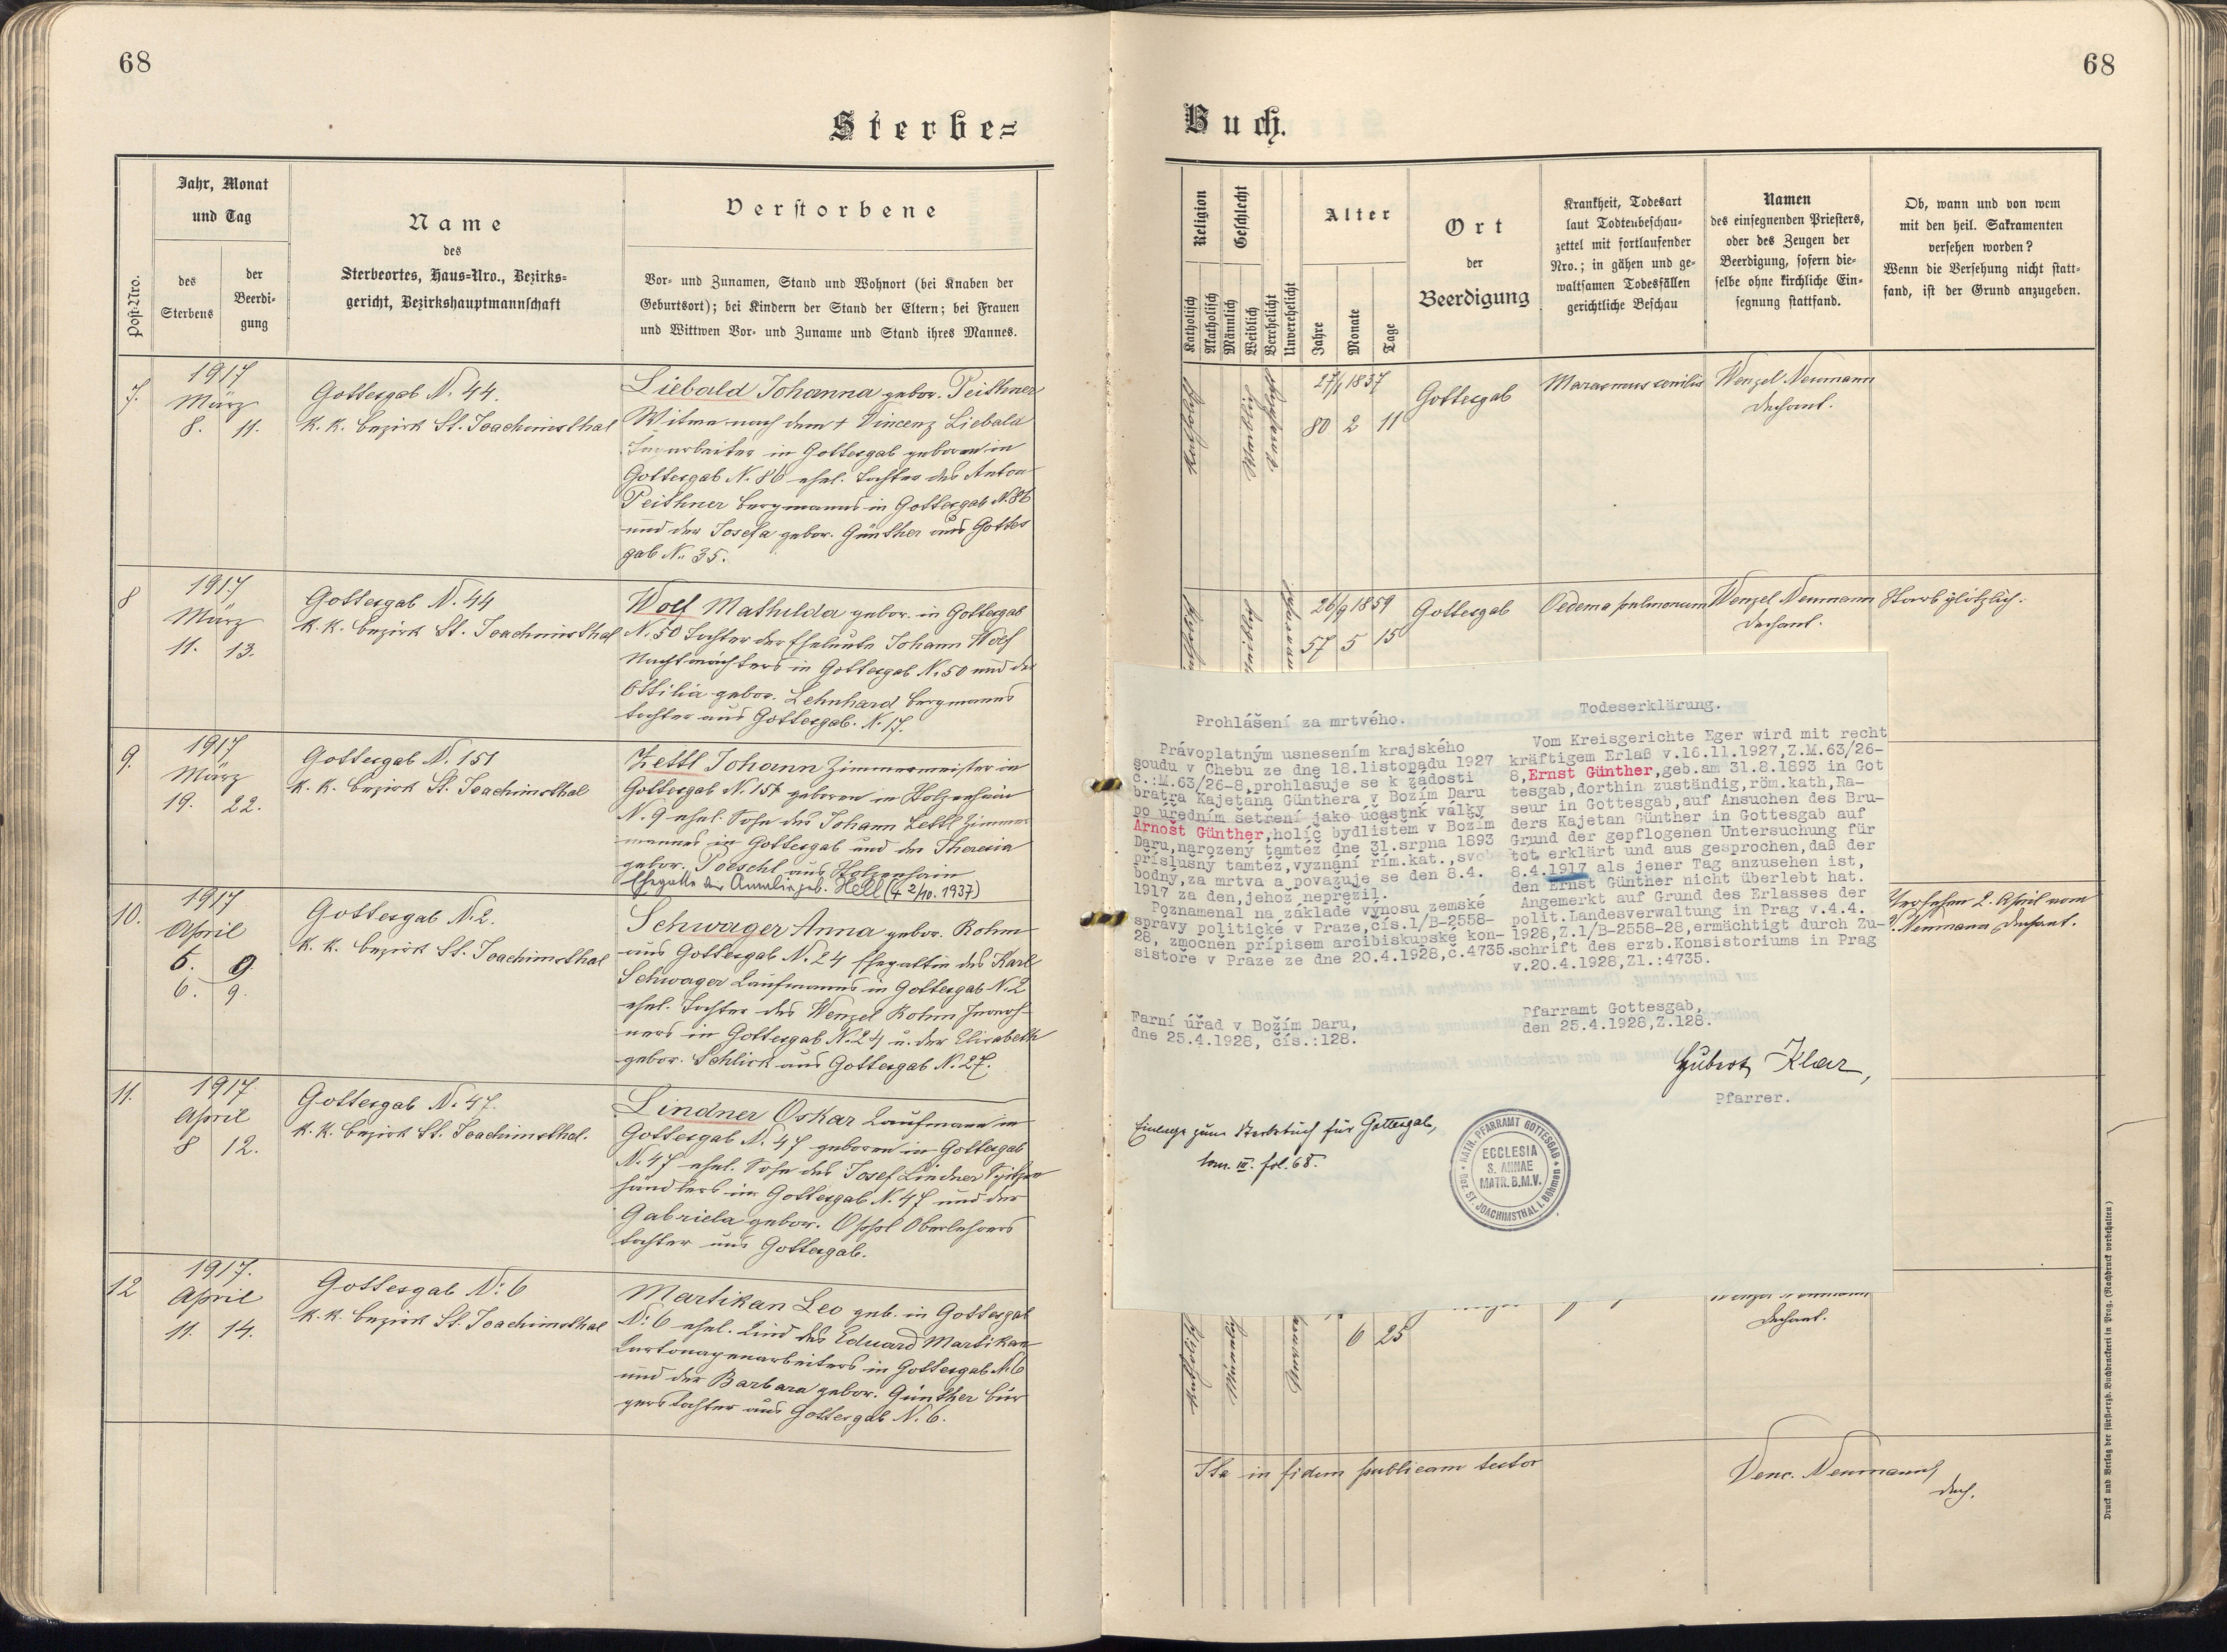 68
Sterbe=
Jahr, Monat
und Tag
Post-Nro.
des
Sterbens
der
Beerdi-
gung
Name
des
Sterbeortes, Haus-Nro., Bezirks-
gericht, Bezirkshauptmannschaft
Verstorbene
Vor- und Zunamen, Stand und Wohnort (bei Knaben der
Geburtsort); bei Kindern der Stand der Eltern; bei Frauen
und Wittwen Vor- und Zuname und Stand ihres Mannes.
7.
1917
März
8. 11.
Gottesgab N. 44.
K. K. bezirk St. Joachimsthal
Liebald Johanna gebor. Peithner
Witwe nach dem † Vincenz Liebald
in Gottesgab geboren in
Gottesgab N. 86 ehel. Tochter des Anton
Peithner Bergmanns in Gottesgab N. 86
und der Josefa gebor. Günther aus Gottes
gab N. 35.
8
1917
März
11. 13.
Gottesgab N. 44
K. K. bezirk St. Joachimsthal
Wolf Mathilda gebor. in Gottesgab
N. 50 Tochter der Eheleute Johann Wolf
Nachtwächters in Gottesgab N. 50 und der
Ottilia gebor. Lehnhard Bergmanns
tochter aus Gottesgab. N. 17.
9.
1917
März
19. 22.
Gottesgab N. 151
K. K. bezirk St. Joachimsthal
Zettl Johann Zimmermeister in
Gottesgab N. 151 geboren in Holzenhain
N. 9 ehel. Sohn des Johann Zettl Zimmer
mannes in Gottesgab und der Theresia
gebor. Poeschl aus Holzenhain
Ehegatte der Amalia geb. Hell († 2/10. 1937)
10.
1917
April
6. 9.
6. 9.
Gottesgab N. 2.
K. K. bezirk St. Joachimsthal
Schwager Anna gebor. Rohm
aus Gottesgab N. 24 Ehegattin des Karl
Schwager Kaufmanns in Gottesgab N. 2
ehel. Tochter des Wenzel Rohm Inwoh-
ners in Gottesgab N. 24 u. der Elisabeth
gebor. Schlick aus Gottesgab N. 27.
11.
1917.
April
8 12.
Gottesgab N. 47.
K. K. bezirk St. Joachimsthal.
Lindner Oskar Kaufmann in
Gottesgab N. 47 geboren in Gottesgab
N. 47 ehel. Sohn des Josef Lindner Spitzen
händlers in Gottesgab N. 47 und der
Gabriela gebor. Oppl Oberlehrers
tochter aus Gottesgab.
12
1917.
April
11. 14.
Gottesgab N: 6
K. K. bezirk St. Joachimsthal
Martikan Leo geb. in Gottesgab
N: 6 ehel. Kind des Eduard Martikan
Kartonagenarbeiters in Gottesgab N. 6
und der Barbara gebor. Günther Bür
gerstochter aus Gottesgab N. 6.
68
Buch.
Religion
Geschlecht
Katholisch
Akatholisch
Männlich
Weiblich
Verehelicht
Unverehelicht
Alter
Jahre
Monate
Tage
Ort
der
Beerdigung
Krankheit, Todesart
laut Todtenbeschau-
zettel mit fortlaufender
Nro.; in gähen und ge-
waltsamen Todesfällen
gerichtliche Beschau
Namen
des einsegnenden Priesters,
oder des Zeugen der
Beerdigung, sofern die-
selbe ohne kirchliche Ein-
segnung stattfand.
Ob, wann und von wem
mit den heil. Sakramenten
versehen worden?
Wenn die Versehung nicht statt-
fand, ist der Grund anzugeben.
Katholisch
Weiblich
27/1 1837
80 2 11
Gottesgab
Marasmus senilis
Wenzel Neumann
Dechant.
26/9 1859
57 5 15
Gottesgab
Oedema pulmonum
Wenzel Neumann
Dechant.
Starb plötzlich.
Prohlášení za mrtvého.
Právoplatným usnesením krajského
soudu v Chebu ze dne 18.listopadu 1927
č.:M.63/26-8,prohlasuje se k žádosti
bratra Kajetana Günthera v Božím Daru
po úředním šetření jako účastnk války
Arnošt Günther,holič bydlištěm v Božím
Daru,narozený tamtéž dne 31.srpna 1893
příslušný tamtéž,vyznání řím.kat.,svo
bodný,za mrtva a považuje se den 8.4.
1917 za den,jehož nepřežil.
Poznamenal na základě výnosu zemské
správy politické v Praze,čís.1/B-2558-
28, zmocněn přípisem arcibiskupské kon-
sistoře v Praze ze dne 20.4.1928,č.4735.
Farní úřad v Božím Daru,
dne 25.4.1928, čís.:128.
Todeserklärung.
Vom Kreisgerichte Eger wird mit recht
kräftigem Erlaß v.16.11.1927,Z.M.63/26-
8,Ernst Günther,geb.am 31.8.1893 in Got
tesgab,dorthin zuständig,röm.kath,Ra-
seur in Gottesgab,auf Ansuchen des Bru-
ders Kajetan Günther in Gottesgab auf
Grund der gepflogenen Untersuchung für
tot erklärt und aus gesprochen,daß der
8.4.1917 als jener Tag anzusehen ist,
den Ernst Günther nicht überlebt hat.
Angemerkt auf Grund des Erlasses der
polit.Landesverwaltung in Prag v.4.4.
1928,Z.1/B-2558-28,ermächtigt durch Zu-
schrift des erzb.Konsistoriums in Prag
v.20.4.1928,Zl.:4735.
Pfarramt Gottesgab,
den 25.4.1928,Z.128.
Hubert Klar,
Pfarrer.
Einlage zum Sterbebuch für Gottesgab,
tom. III. fol. 68.
KATH. PFARRAMT GOTTESGAB
Bez. ST. JOACHIMSTHAL i. Böhmen
ECCLESIA
S. ANNAE
MATR. B.M.V.
Versehen 2. April vom
W. Neumann Dechant.
Wenzel Neumann
Dechant.
6 25
Männlich
Ita in fidem publicam testor
Venc. Neumann
dech.
Druck und Verlag der fürst-erzb. Buchdruckerei in Prag. (Nachdruck vorbehalten)